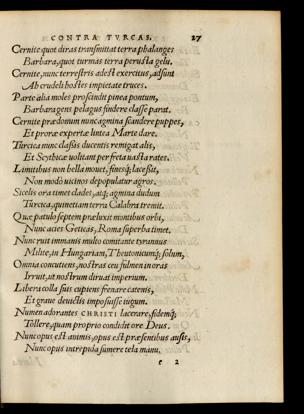 CONTRA TVRCAS. 27
Cernite quot diras transmittat terra phalanges
Barbara, quot turmas terra perusta gelu.
Cernite, nunc terrestris adest exercitus, adsunt
Ah crudeli hostes impietate truces.
Parte alia moles proscindit pinea pontum,
Barbara gens pelagus findere classe parat.
Cernite prædonum nunc agmina scandere puppes,
Et proræ expertæ lintea Marte dare.
Turcica nunc classis ducentis remigat alis,
Et Scythicæ uolitant per freta uasta rates.
Limitibus non bella mouet, finesq; lacessit,
Non modò uicinos depopulatur agros.
Sicelis ora timet clades, atq; agmina dudum
Turcica, quin etiam terra Calabra tremit.
Quæ patulo septem præluxit montibus orbi,
Nunc acies Geticas, Roma superba timet.
Nunc ruit immanis multo comitante tyrannus
Milite, in Hungariam, Theutonicumq; solum,
Omnia concutiens, nostras ceu fulmen in oras
Irruit, ut nostrum diruat imperium.
Libera colla suis cupiens frenare catenis,
Et graue deuictis imposuisse iugum.
Numen adorantes CHRISTI lacerare, fidemq;
Tollere, quam proprio condidit ore Deus.
Nunc opus est animis, opus est præsentibus ausis,
Nunc opus intrepida sumere tela manu.
e 2